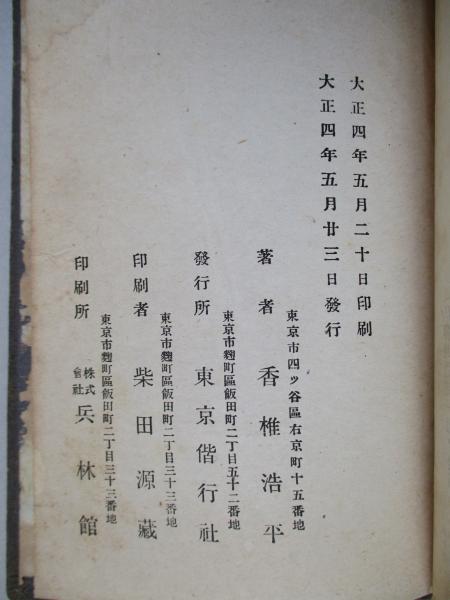 大正四年五月二十日印刷
大正四年五月廿三日發行
東京市四ツ谷區右京町十五番地
著者 香椎浩平
東京市麴町區飯田町二丁目五十二番地
發行所 東京偕行社
東京市麴町區飯田町二丁目三十三番地
印刷者 柴田源藏
東京市麴町區飯田町二丁目三十三番地
印刷所 株式會社 兵林館